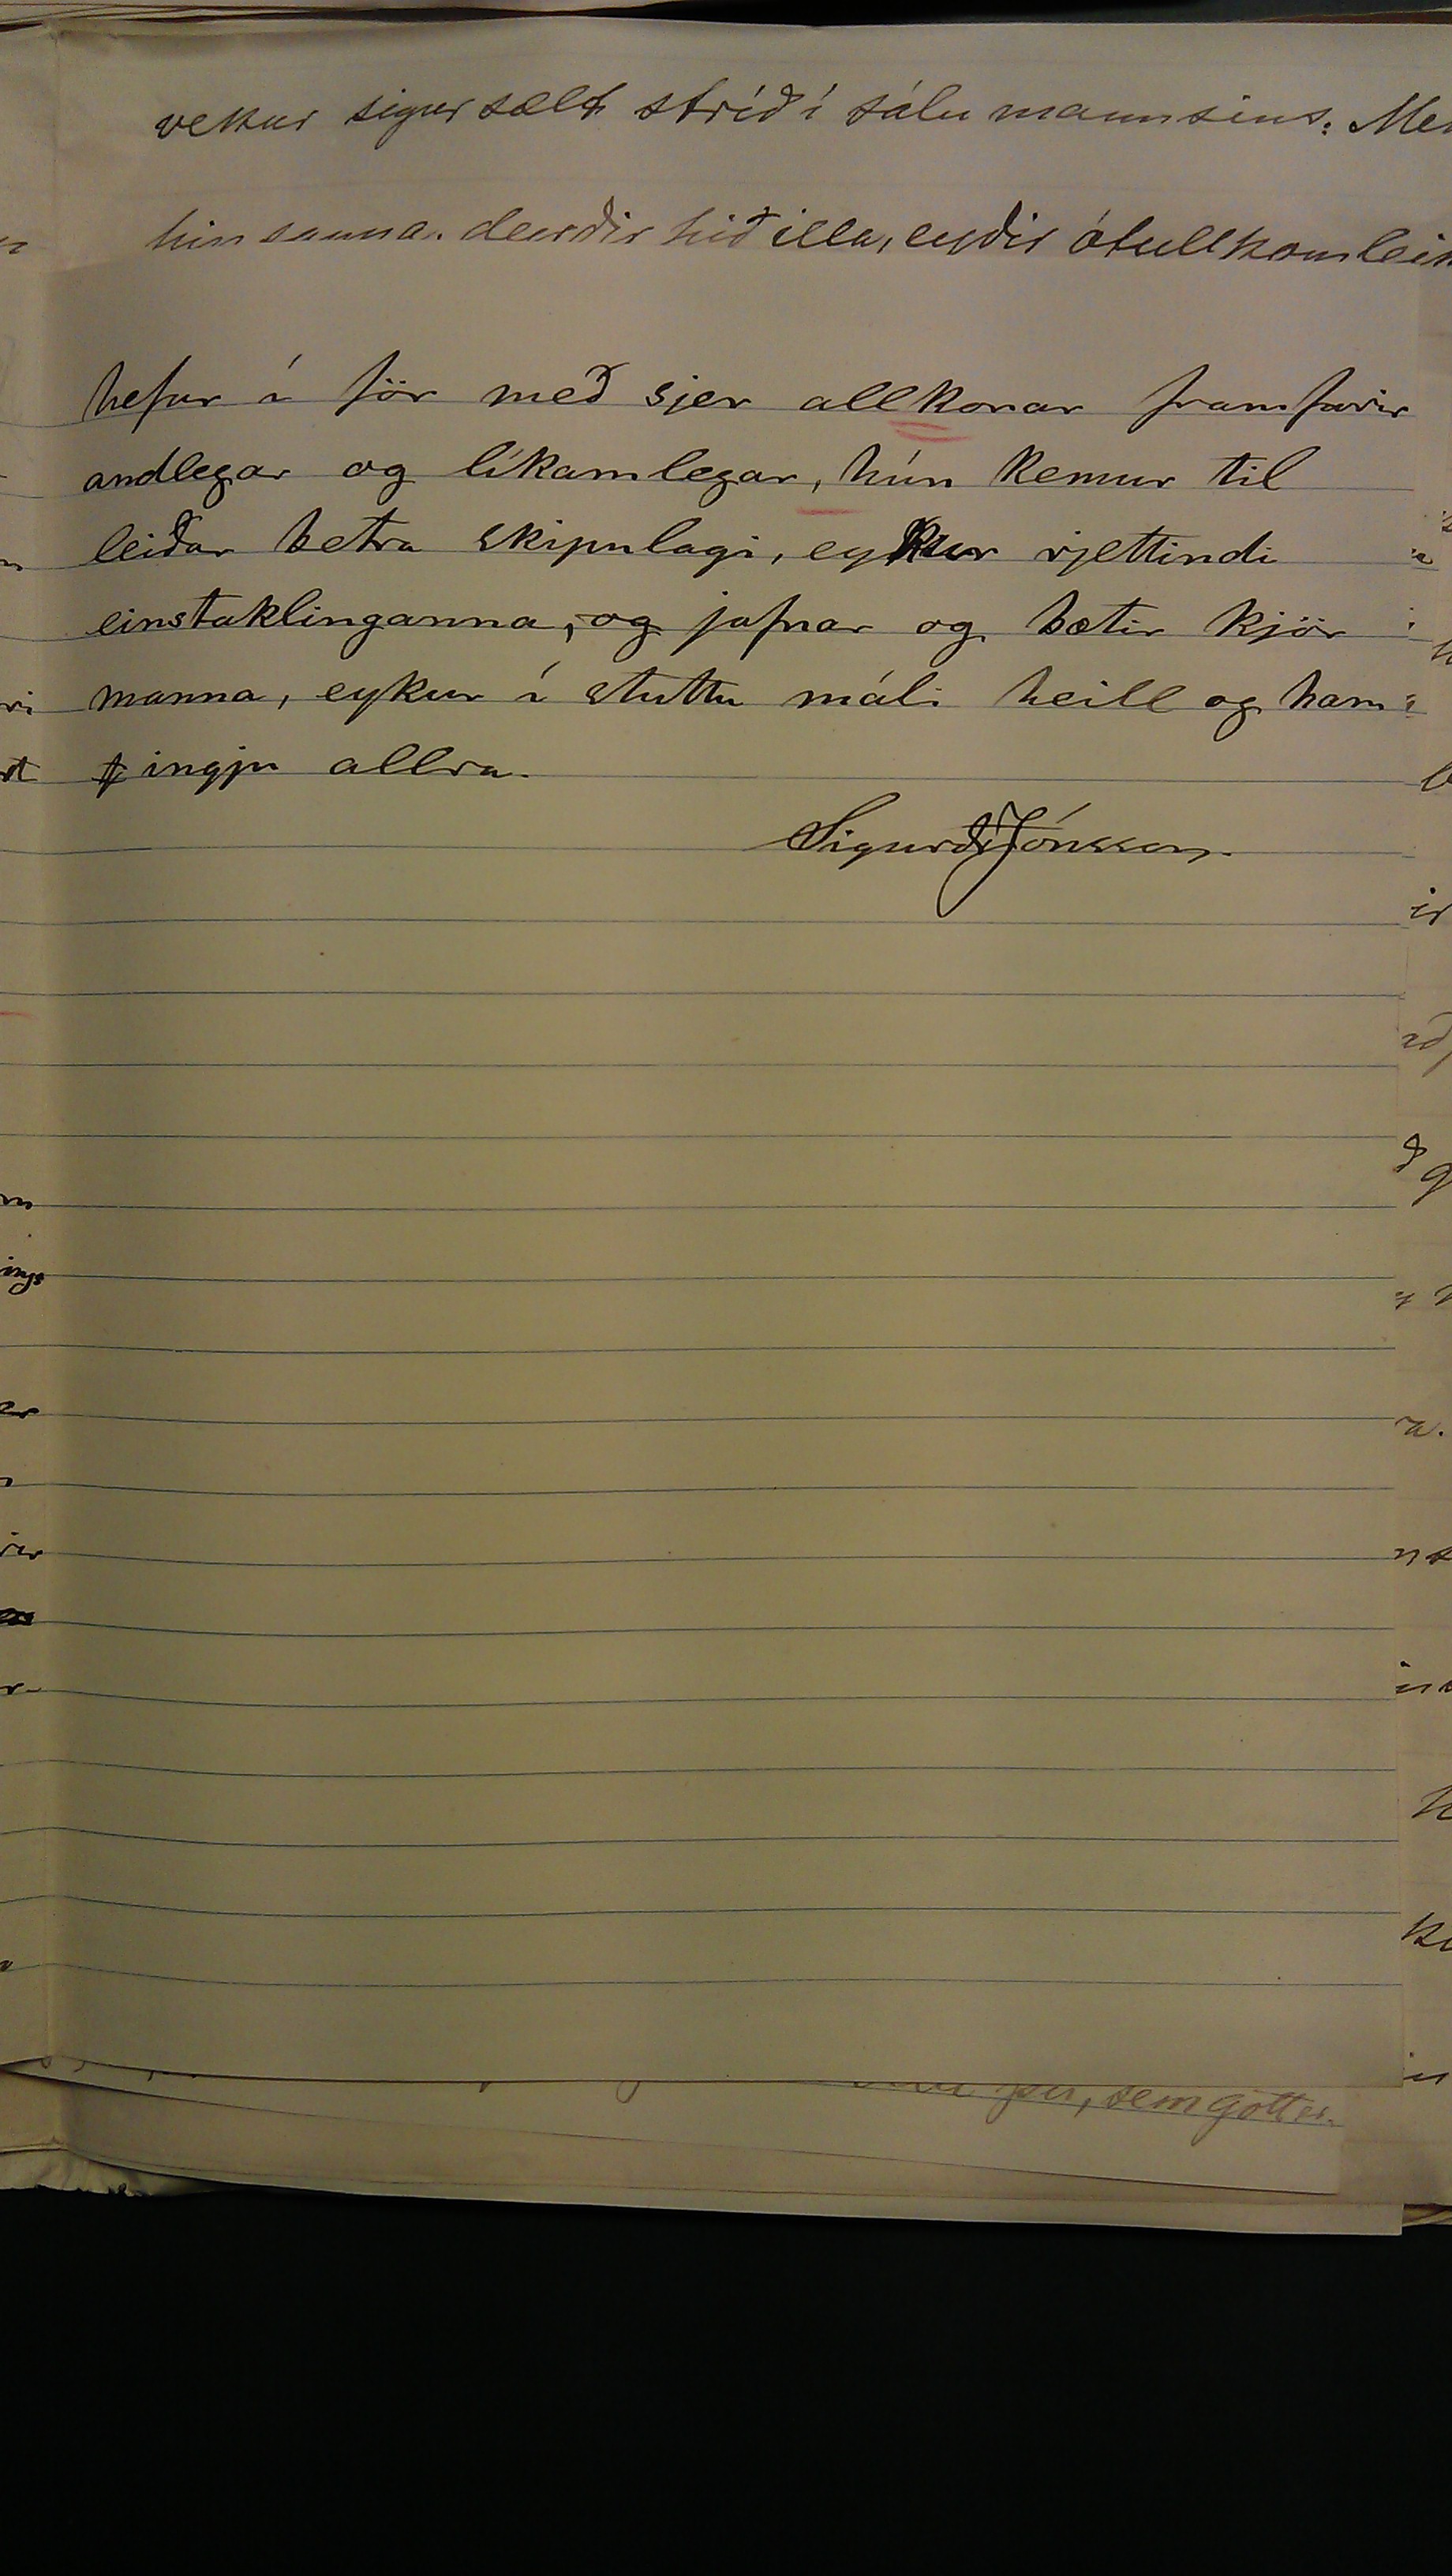 vekur sigursælt stríð í sálu mannsins: Men
hin sanna. deyðir hið illa, eyðir ófullkomleik
hefur í för með sjer allkonar framfarir
andlegar og líkamlegar, hún kemur til
leiðar betra skipulagi, eykur rjettindi
einstaklinganna, og jafnar og bætir kjör
manna, eykur í stuttu máli heill og ham-
ingju allra.
Sigurður Jónsson.
sem gott er.